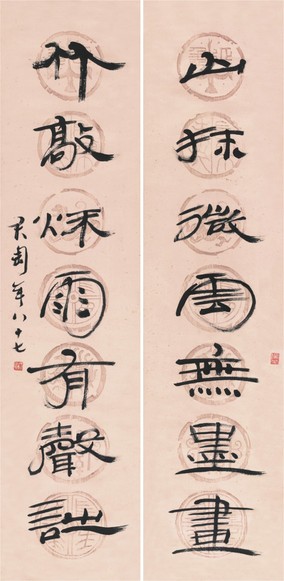 山抹微雲無墨畫
竹敲秌雨有聲詩
君匋年八十七